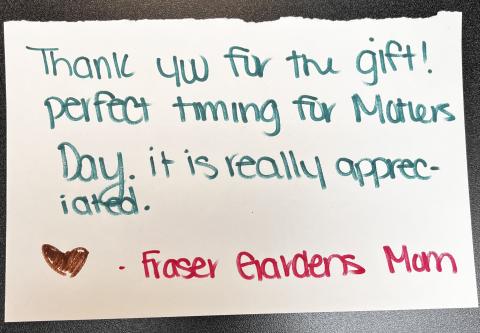 Thank you for the gift!
perfect timing for Mothers
Day. it is really apprec-
iated.
- Fraser Gardens Mom